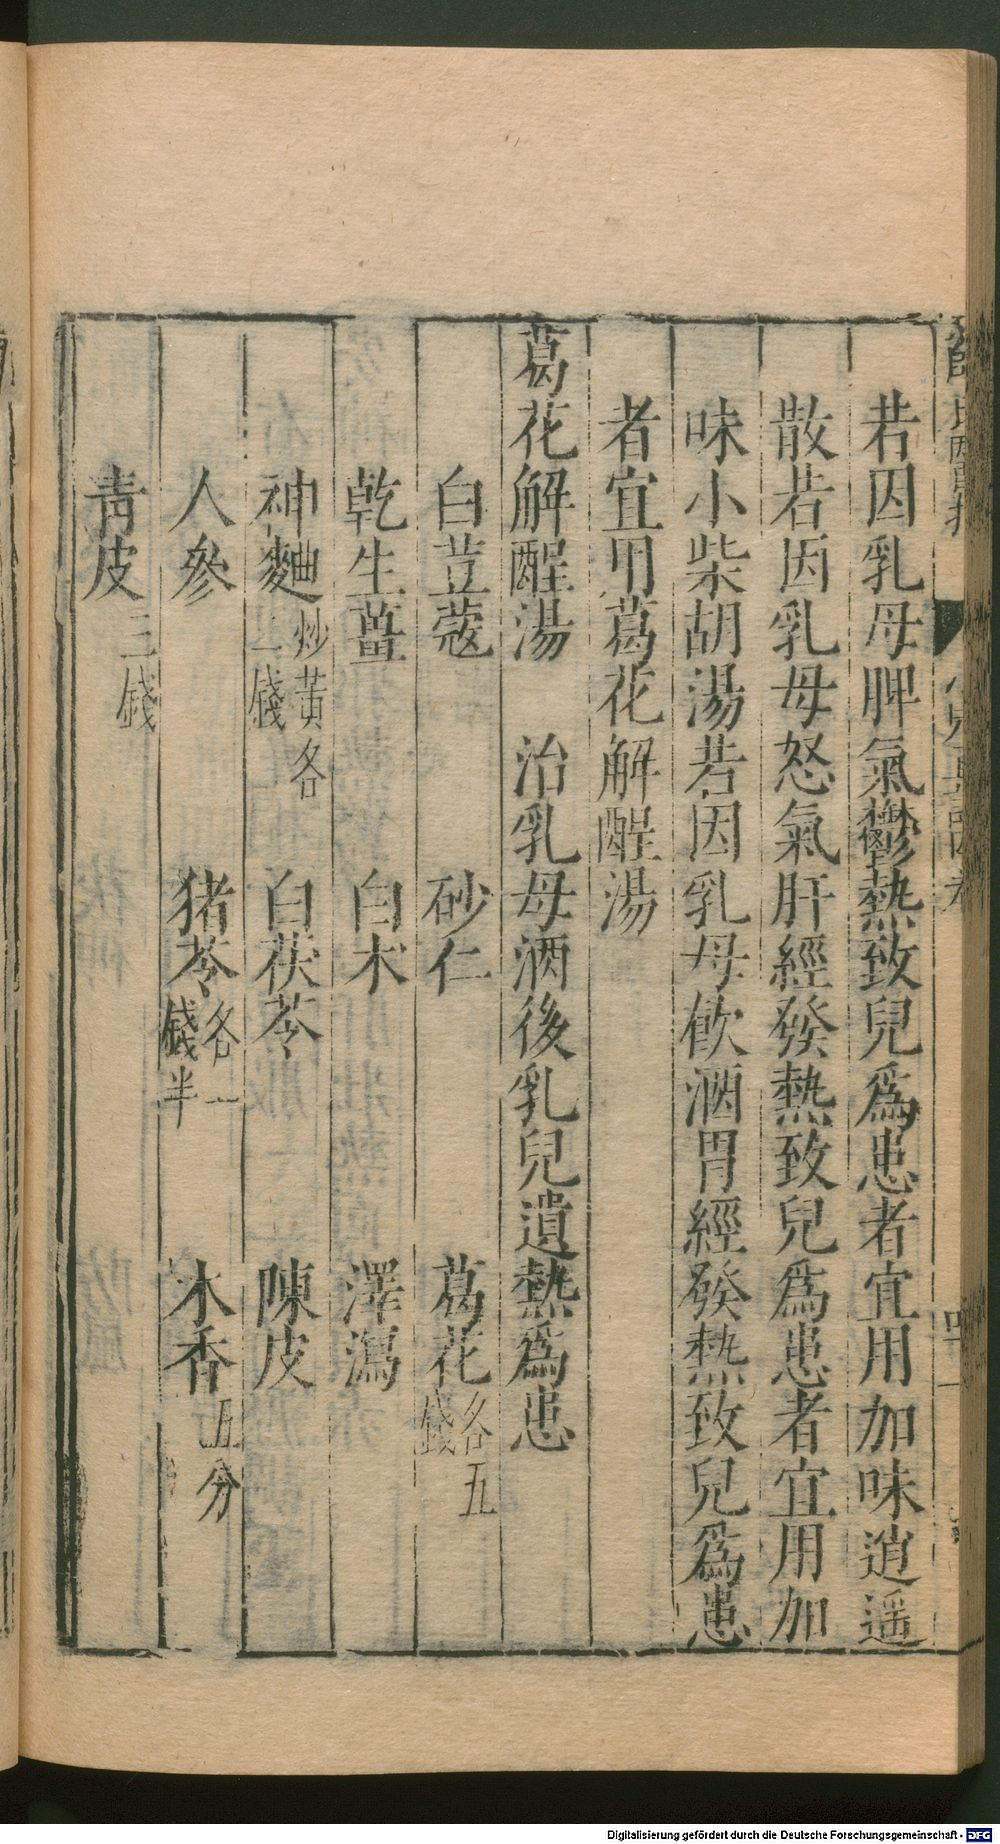 若因乳母脾氣鬱熱致兒爲患者宜用加味逍遥
散若因乳母怒氣肝經發熱致兒爲患者宜用加
味小柴胡湯若因乳母飲酒胃經發熱致兒爲患
者宜用葛花解醒湯
葛花解醒湯　治乳母酒後乳兒遺熱爲患
白荳蔻　砂仁　葛花各五錢
乾生薑　白朮　澤瀉
神麯炒黃各二錢　白茯苓　陳皮
人參　猪苓各一錢半　木香五分
青皮三錢
Digitalisierung gefördert durch die Deutsche Forschungsgemeinschaft - DFG